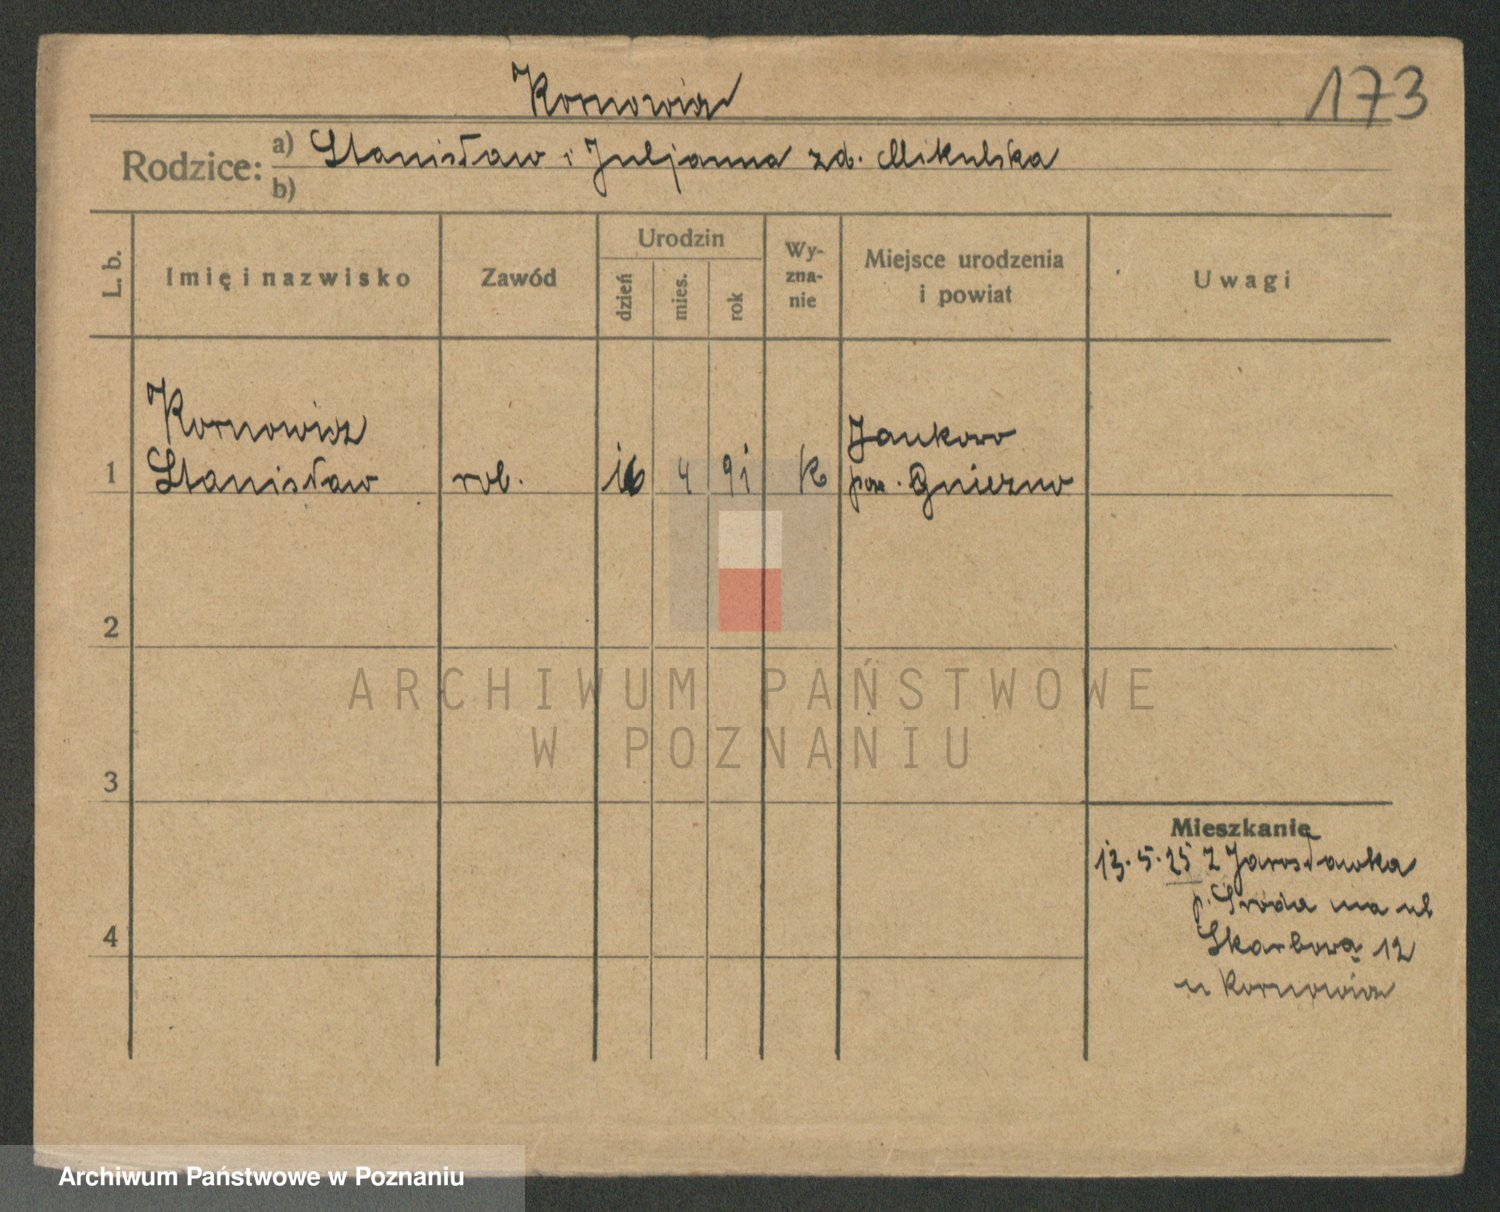 Kornowicz
173
Rodzice: a) Stanisław i Juljanna zd. Mikulska
b)
L. b.
Imię i nazwisko
Zawód
Urodzin
dzień
mies.
rok
Wy-
zna-
nie
Miejsce urodzenia
i powiat
Uwagi
Kornowicz
Jankowo
1 Stanisław rob. 16 4 91 K pow. Gniezno
2
ARCHIWUM PAŃSTWOWE
W POZNANIU
3
Mieszkanie
13.5.25 z Jarosławka
p. Środa na ul
4
Skarbową 12
u Kornowicz
Archiwum Państwowe w Poznaniu